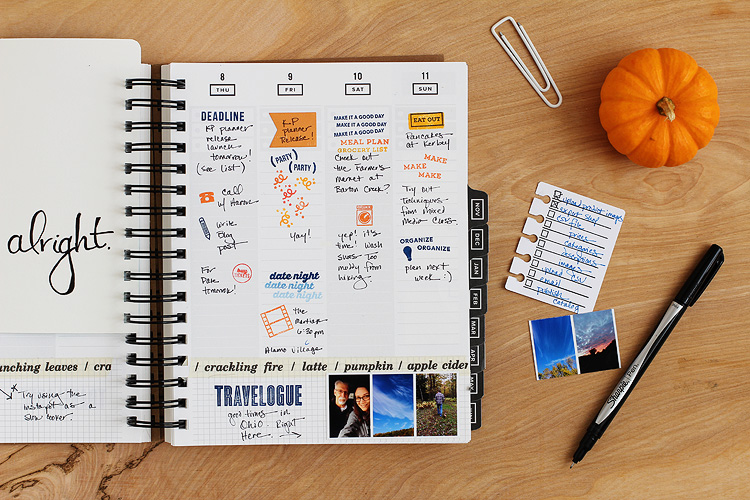 alright.
nching leaves / cra
Try using the
instapot as a
slow cooker.
8
THU
DEADLINE
KP planner
release
launch
tomorrow!
(see list)
call
w/ Harow
write
blog
post
For
Date
tomorrow!
9
FRI
KP
planner
Release!
(PARTY)
(PARTY)
yay!
date night
date night
date night
the
martian
6:30 pm
Alamo Village
10
SAT
MAKE IT A GOOD DAY
MAKE IT A GOOD DAY
MAKE IT A GOOD DAY
MEAL PLAN
GROCERY LIST
Check out
the Farmer's
market at
Barton Creek?
yep! it's
time! wash
shoes too
muddy from
hiking.
11
SUN
EAT OUT
Pancakes
at Kerbey
MAKE
MAKE
MAKE
Try out
Techniques
from Mixed
Media Class.
ORGANIZE
ORGANIZE
plan next
week :)
/ crackling fire / latte / pumpkin / apple cider
TRAVELOGUE
good times in
Ohio. Right
Here.
NOV
DEC
JAN
FEB
MAR
APR
upload product images
export shop
csv file
prices
categories
descriptions
images
upload csv/
email
publish
catalog
Sharpie Pen